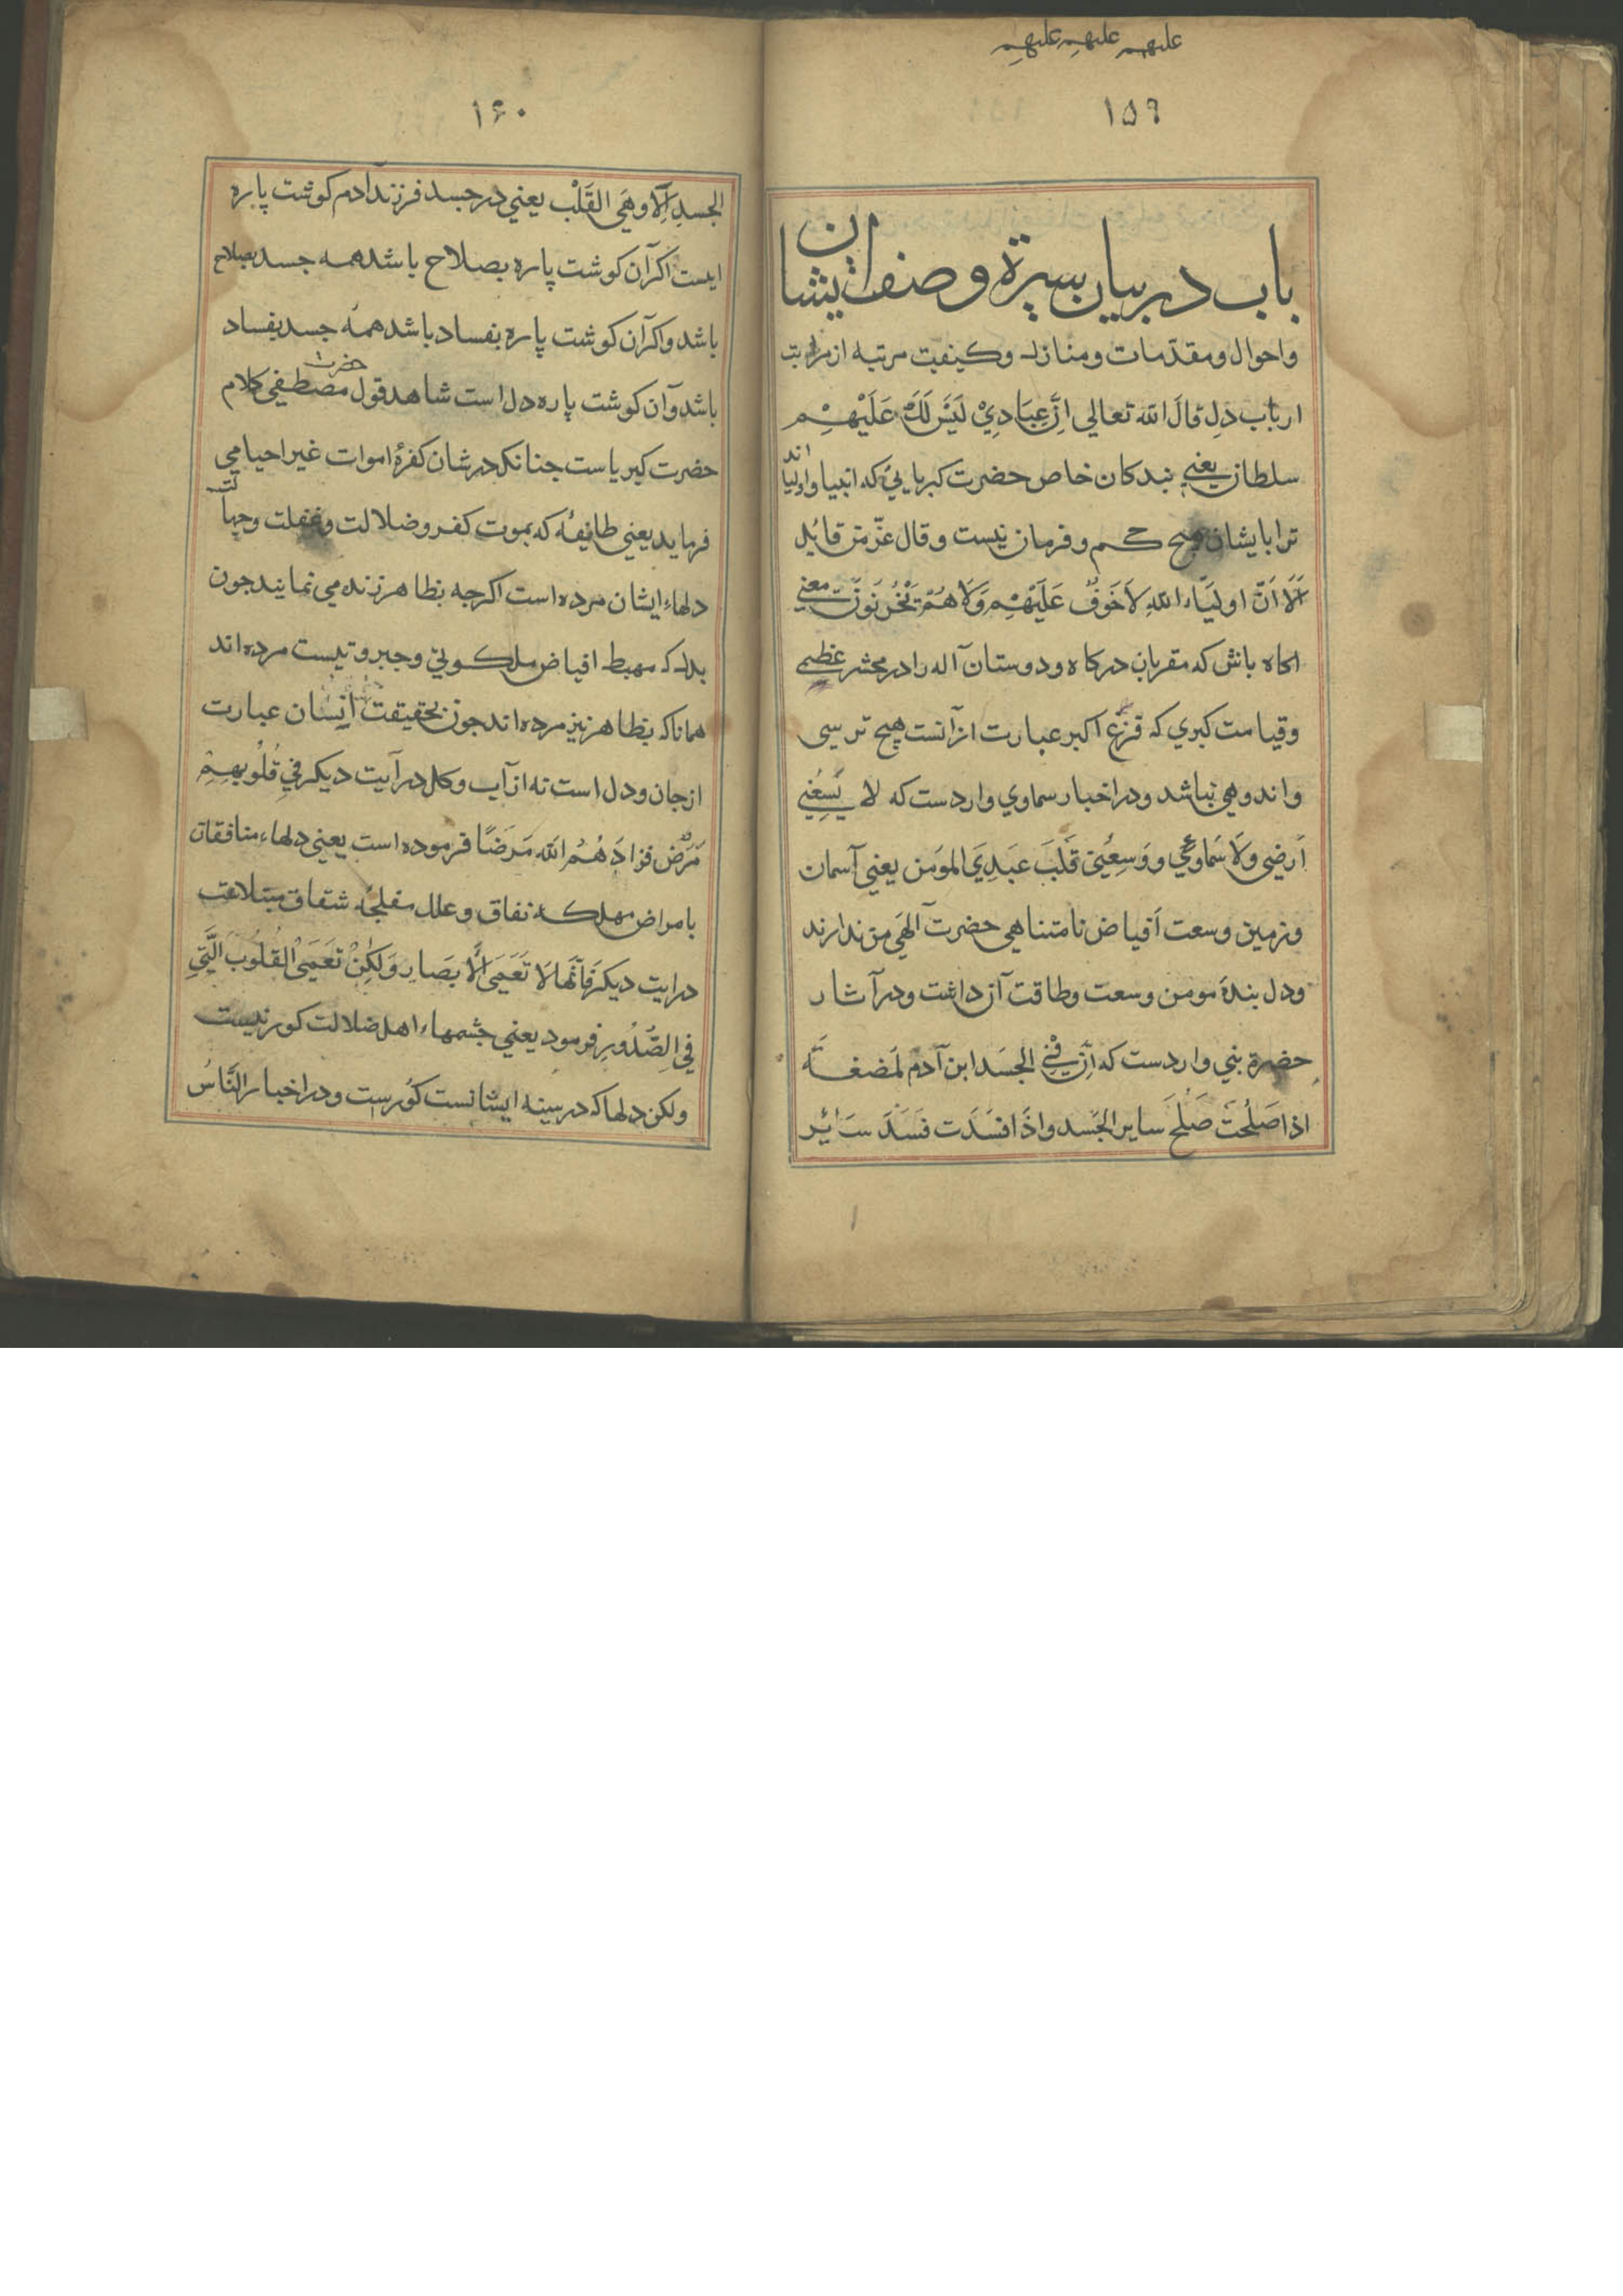 عليهم عليهم عليهم
۱۵۹
باب در بيان سيرة و صفت ايشان
واحوال ومقدمات ومنازل وكيفيت مرتبه از مراتب
ارباب دل قالَ الله تعالى اِنَّ عِبَادِيْ لَيْسَ لَكَ عَلَيْهِمْ
سلطان يعني بندكان خاص حضرت كبريايئ كه انبيا واوليا اند
ترا بايشان هيچ حكم و فرمان نيست و قال عزّ من قائل
اَلَا اَنَّ اولَيَاء اللهِ لَاخَوفٌ عَلَيْهِمْ وَلَا هُمْ يَحْزَنُونَ معني
اكاه باش كه مقربان دركاه ودوستان آله را در محشر عظمي
وقيامت كبري كه فزع اكبر عبارت از آنست هيچ ترسي
واندوهي نباشد ودر اخبار سماوي واردست كه لا يَسِعُنِي
اَرضي ولَا سَماوَئِي ووَسِعُنِي قَلْبَ عَبدِيَ المومَن يعني آسمان
وزمين وسعت اَفياض نامتناهي حضرت آلهي من ندارند
ودل بندهٔ مومن وسعت وطاقت آن داشت ودر آثار
حضرة نبي واردست كه اِنَّ فِي الجَسَد ابن آدم لَمضغَةً
اذا صَلُحَتْ صَلُحَ ساير الجَسد واذَا فسَدَت فسَدَ سَائِر
۱۶۰
الجسد اَلا وهَي القَلْب يعني در جسد فرزند ادم كوشت پاره
ايست اكر آن كوشت پاره بصلاح باشد همه جسد بصلاح
باشد واكر آن كوشت پاره بفساد باشد همه جسد بفساد
باشد وآن كوشت پاره دل است شاهد قول حضرت مصطفي كلام
حضرت كبرياست جنانكه در شان كفرهٔ اموات غير احيا مي
فرمايد يعني طايفهٔ كه بموت كفر وضلالت وغفلت وجهالت
دلهاء ايشان مرده است اكرجه بظاهر زنده مي نمايند جون
بدل كه مهبط افياض ملكوتي وجبروتيست مرده اند
همانا كه بظاهر نيز مرده اند جون بحقيقت انِسَان عبارت
از جان ودل است نه از آب وكل در آيت ديكر فِي قُلُوبِهِمْ
مَرَضٌ فزادَهُمُ الله مَرَضًا فرموده است يعني دلهاء منافقان
بامراض مهلكه نفاق وعلل شقاق مبتلاءت
در ايت ديكر فَاِنَّها لَا تَعَمَي الْاَبصَار وَلكِنْ تَعَمَي القُلُوبَ الَّتِي
فِي الصُّدُورِ فرمود يعني جشمهاء اهل ضلالت كور نيست
ولكن دلها كه در سينه ايشانست كور است ودر اخبار النَّاسُ